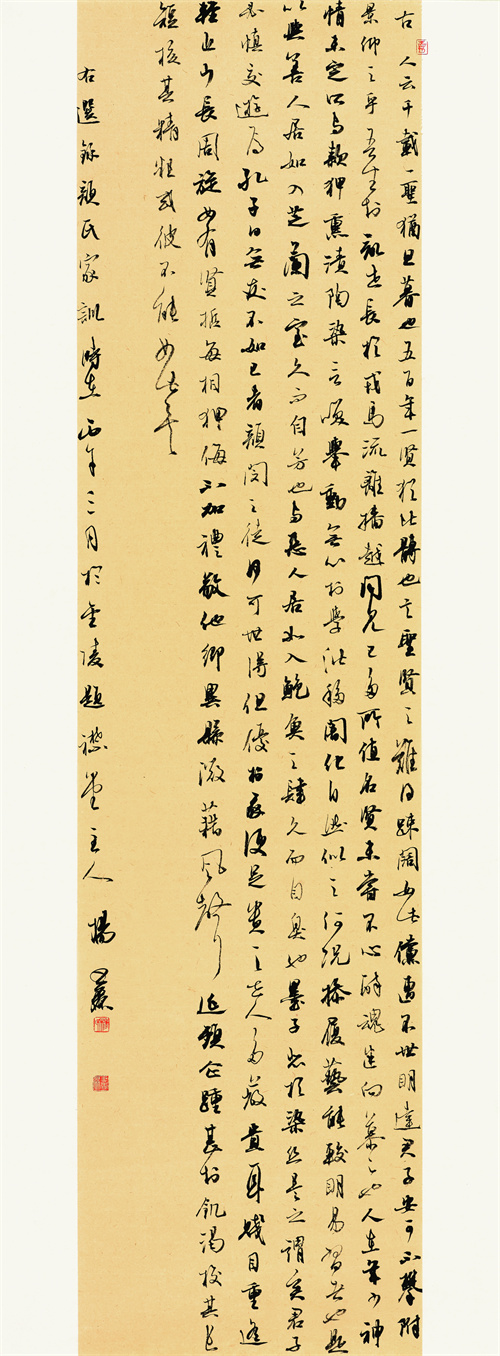 古人云千載一聖猶旦暮也五百年一賢猶比髆也言聖賢之難得疎闊如此儻遭不世明達君子安可不攀附
景仰之乎吾生於亂世長於戎馬流離播越聞見已多所值名賢未嘗不心醉魂迷向慕之也人在年少神
情未定所與款狎熏漬陶染言咲舉動無心於學潛移闇化自然似之何況操履藝能較明易習者也是
以與善人居如入芝蘭之室久而自芳也與惡人居如入鮑魚之肆久而自臭也墨子悲於染絲是之謂矣君子
必慎交遊焉孔子曰無友不如己者顏閔之徒何可世得但優於我便足貴之世人多蔽貴耳賤目重遙
輕近少長周旋如有賢哲每相狎侮不加禮敬他鄉異縣微藉風聲延頸企踵甚於飢渴校其長
短核其精粗或彼不能如此矣
右選錄顏氏家訓時在丙午三月於金陵題襟堂主人楊